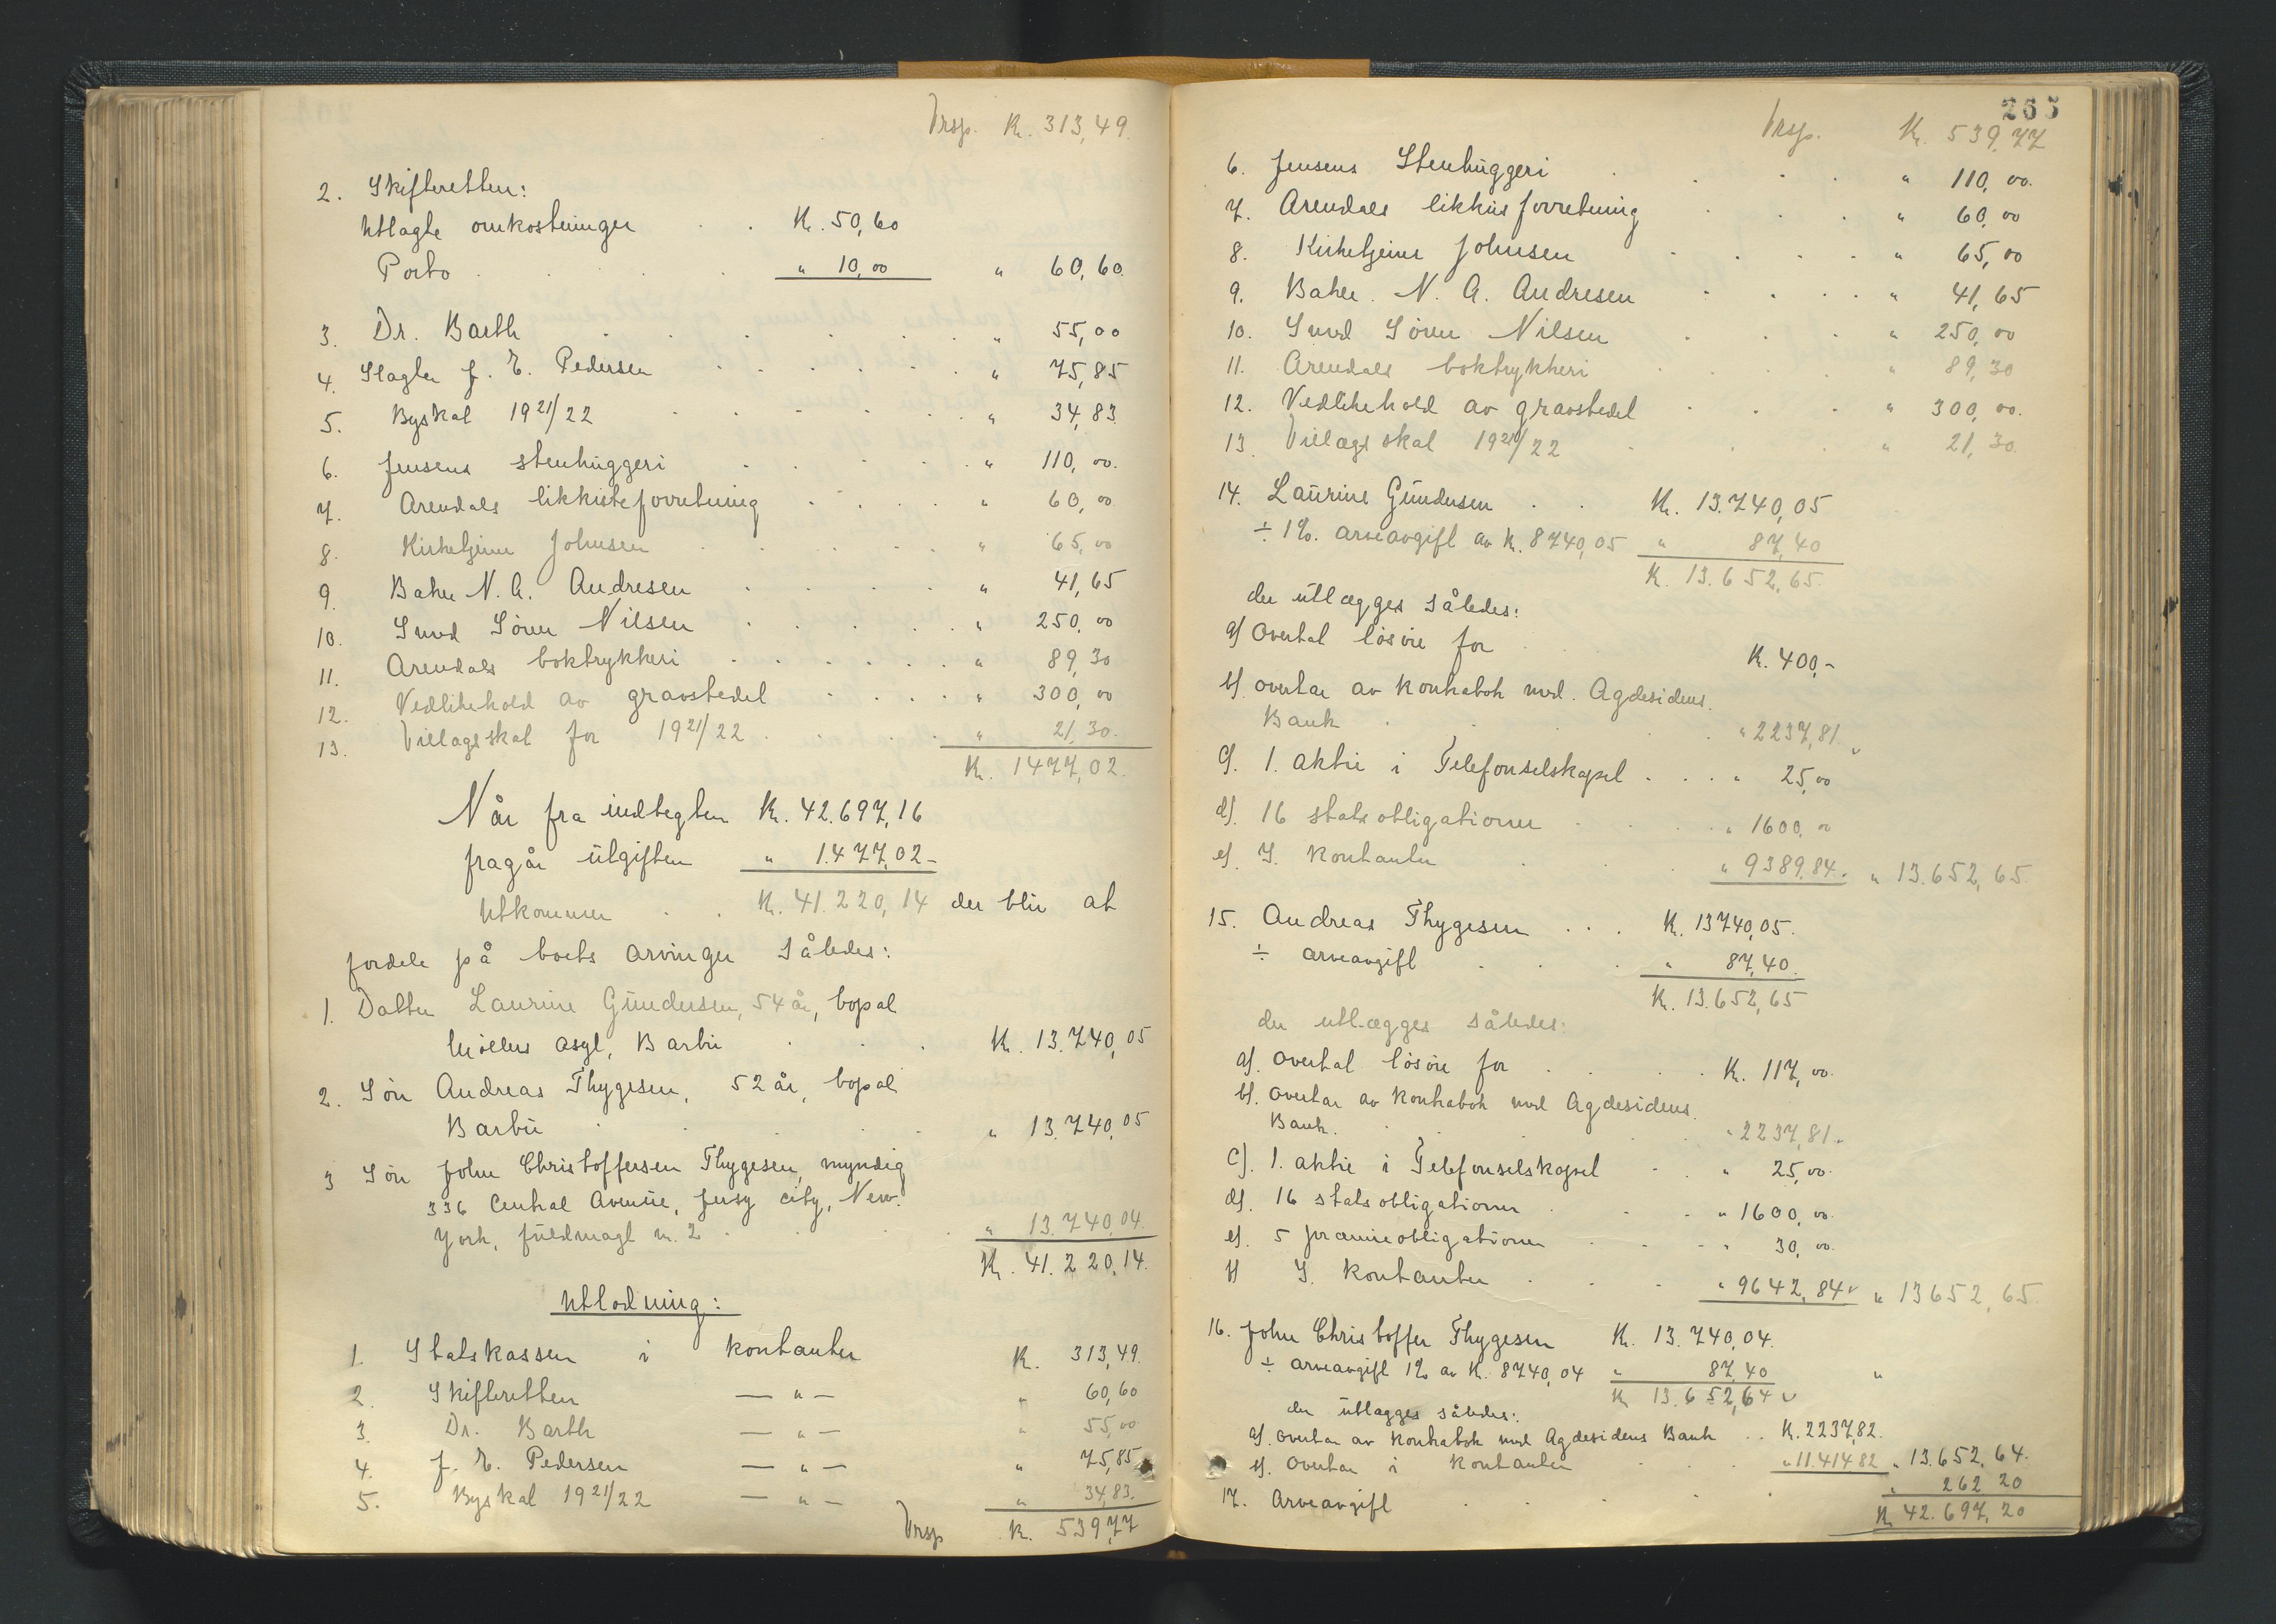 Trsp. Kr. 313,49.
2. Skifteretten:
Utlagte omkostninger . . Kr. 50,60
Porto . . . . " 10,00 " 60,60.
3. Dr. Barth . . . . . " 55,00
4. Slagter J. E. Pedersen . . . . . . " 75,85
5. Byskat 1921/22 . . . . . . " 34,83
6. Jensens stenhuggeri . . . . . " 110,00.
7. Arendals likkisteforretning . . . . " 60,00
8. Kirketjener Johnsen . . . . . " 65,00
9. Baker N. A. Andresen . . . . " 41,65
10. Smed Sören Nilsen . . . . . " 250,00
11. Arendals boktrykkeri . . . . . . " 89,30
12. Vedlikehold av gravstedet . . . . " 300,00
13. Tillægsskat for 1921/22 . . . . " 21,30.
Kr. 1477,02.
Når fra indtegten Kr. 42.697,16
fragår utgiften " 1.477,02-
Utkommer . . K. 41.220,14 der blir at
fordele på boets arvinger således:
1. Datter Laurine Gundersen, 54 år, bopæl
Møllers asyl, Barbu . . . Kr. 13.740,05
2. Sön Andreas Thygesen, 52 år, bopæl
Barbu . . . . . " 13.740,05
3 Sön John Christoffersen Thygesen, myndig
336 Central Avenue, Jersy city, New.
York, fuldmægt n. 2 . . . " 13.740,04.
Kr. 41.220,14.
Utlodning:
1. Statskassen i kontanter K. 313,49.
2. Skifteretten — " — " 60,60
3. Dr. Barth — " — " 55,00
4. J. E. Pedersen — " — " 75,85
5. Byskat 1921/22 — " — " 34,83.
Trsp K. 539,77
265
Trsp. K. 539,77
6. Jensens Stenhuggeri . . . . " 110,00.
7. Arendals likkisteforretning . . . " 60,00
8. Kirketjener Johnsen . . . . " 65,00
9. Baker. N. A. Andresen . . . . " 41,65
10. Smed Sören Nilsen . . . " 250,00
11. Arendals boktrykkeri . . . . " 89,30
12. Vedlikehold av gravstedet . . . " 300,00.
13. Tillægsskat 1921/22 . . . " 21,30.
14. Laurine Gundersen . . Kr. 13.740,05
÷ 1%. arveavgift av K. 8740,05 " 87,40
K. 13.652,65.
der utlægges således:
a) overtat lösöre for . . . K. 400,-
b). overtar av kontrabok med. Agdesidens.
Bank . . . . " 2237,81.
c). 1. aktie i Telefonselskapet . . . " 25,00
d). 16 statsobligationer . . . " 1600,00
e). I. kontanter . . . " 9389,84. " 13.652,65.
15. Andreas Thygesen . . . K. 13740,05.
÷ arveavgift . . . " 87,40.
K. 13.652,65
der utlægges således:
a). overtat lösöre for . . . . K. 117,00.
b). overtar av kontrabok med Agdesidens.
Bank. . . . . " 2237,81.
c). 1. aktie i Telefonselskapet . . " 25,00.
d). 16 statsobligationer . . . " 1600,00.
e). 5 præmieobligationer . . . " 30,00.
f) I. kontanter . . . " 9642,84 " 13652,65.
16. John Christoffer Thygesen K. 13.740,04.
÷ arveavgift 1% av K. 8740,04 " 87,40 "
K 13.652,64
der utlægges således:
a). overtar av kontrabok med Agdesidens Bank . . K. 2237,82.
b). overtar i kontanter . . . " 11.414,82 " 13.652,64.
17. Arveavgift . . . . . " 262 20
K 42.697,20